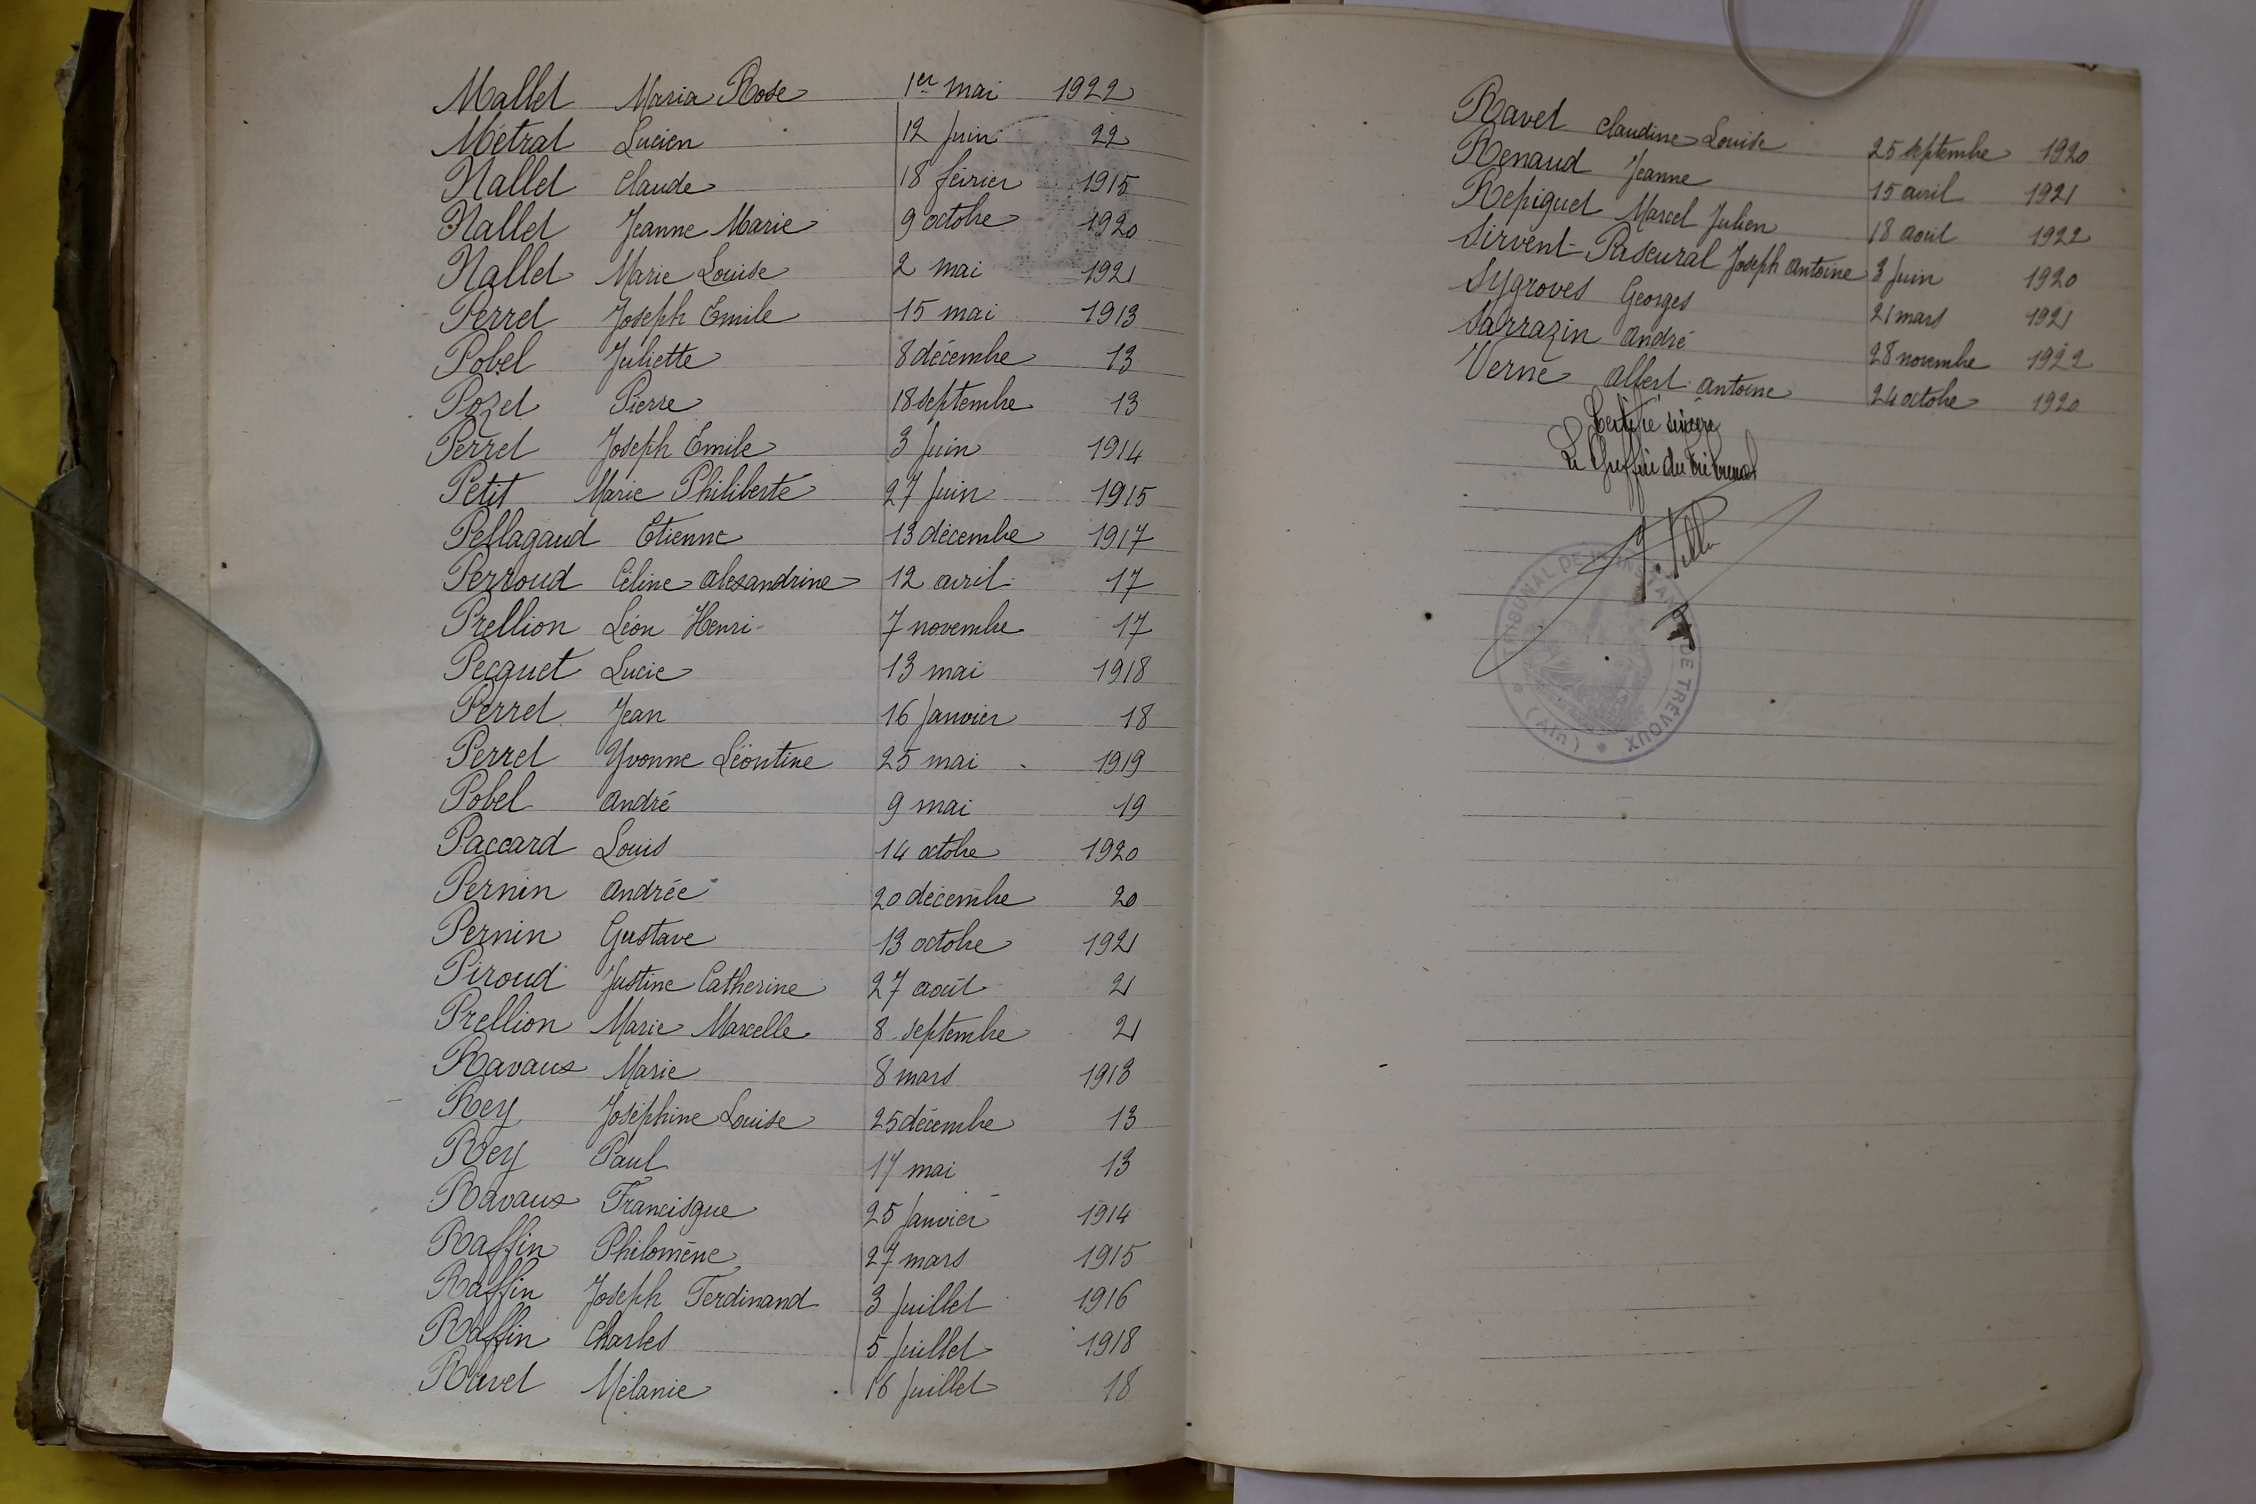 Mallet Maria Rose 1er mai 1922
Métral Lucien 12 Juin 22
Nallet Claude 18 février 1915
Nallet Jeanne Marie 9 octobre 1920
Nallet Marie Louise 2 mai 1921
Perret Joseph Emile 15 mai 1913
Pobel Juliette 8 décembre 13
Pozet Pierre 18 septembre 13
Perret Joseph Emile 3 Juin 1914
Petit Marie Philiberte 27 Juin 1915
Pellagaud Etienne 13 décembre 1917
Perroud Céline Alexandrine 12 avril 17
Prellion Léon Henri 7 novembre 17
Pecquet Lucie 13 mai 1918
Perret Jean 16 Janvier 18
Perret Yvonne Léontine 25 mai 1919
Pobel André 9 mai 19
Paccard Louis 14 octobre 1920
Pernin Andrée 20 décembre 20
Pernin Gustave 13 octobre 1921
Piroud Justine Catherine 27 août 21
Prellion Marie Marcelle 8 septembre 21
Ravaux Marie 8 mars 1913
Rey Joséphine Louise 25 décembre 13
Rey Paul 17 mai 13
Ravaux Francisque 25 Janvier 1914
Raffin Philomène 27 mars 1915
Raffin Joseph Ferdinand 3 Juillet 1916
Raffin Charles 5 Juillet 1918
Ravet Mélanie 16 Juillet 18
Ravet Claudine Louise 25 septembre 1920
Renaud Jeanne 15 avril 1921
Repiquet Marcel Julien 18 août 1922
Sirvent-Pascural Joseph Antoine 3 Juin 1920
Sygroves Georges 21 mars 1921
Sarrazin André 28 novembre 1922
Verne Albert Antoine 24 octobre 1920
Certifié sincère
Le Greffier du Tribunal
TRIBUNAL DE 1ÈRE INSTANCE DE TRÉVOUX
(AIN)